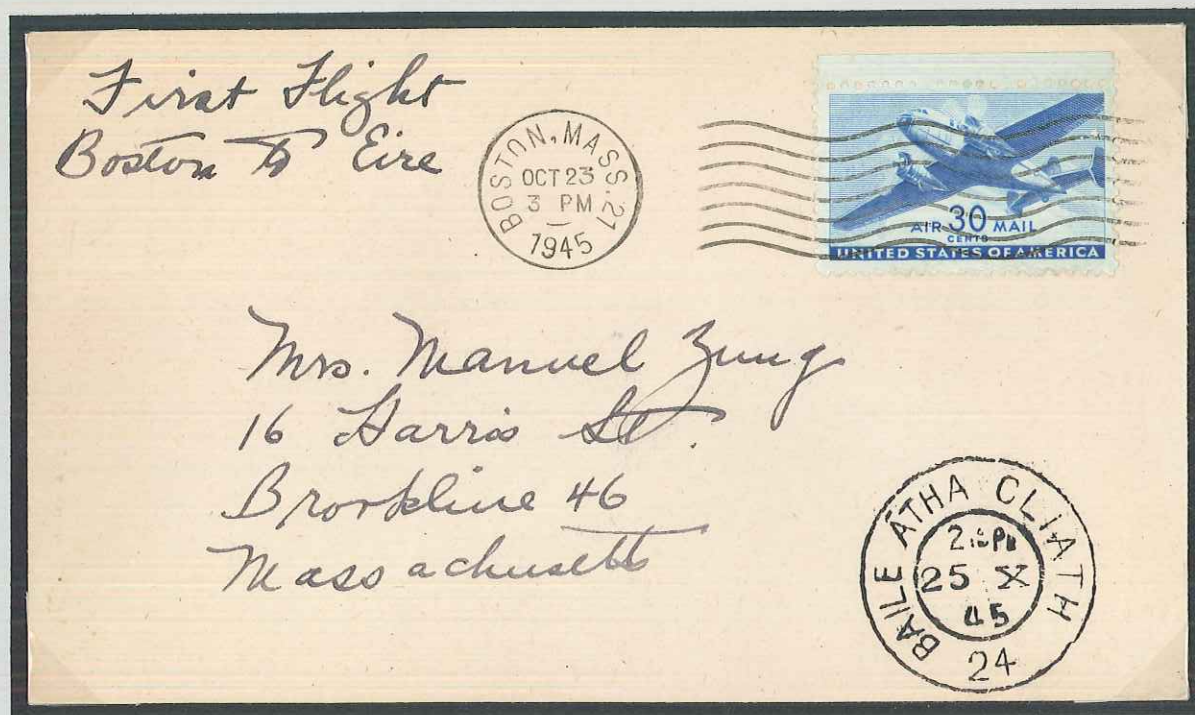 First Flight
Boston to Eire
BOSTON, MASS. 21
OCT 23
3 PM
1945
AIR 30 MAIL
CENTS
UNITED STATES OF AMERICA
Mrs. Manuel Zung
16 Harris St.
Brookline 46
Massachusetts
BAILE ÁTHA CLIATH
25 X
45
24